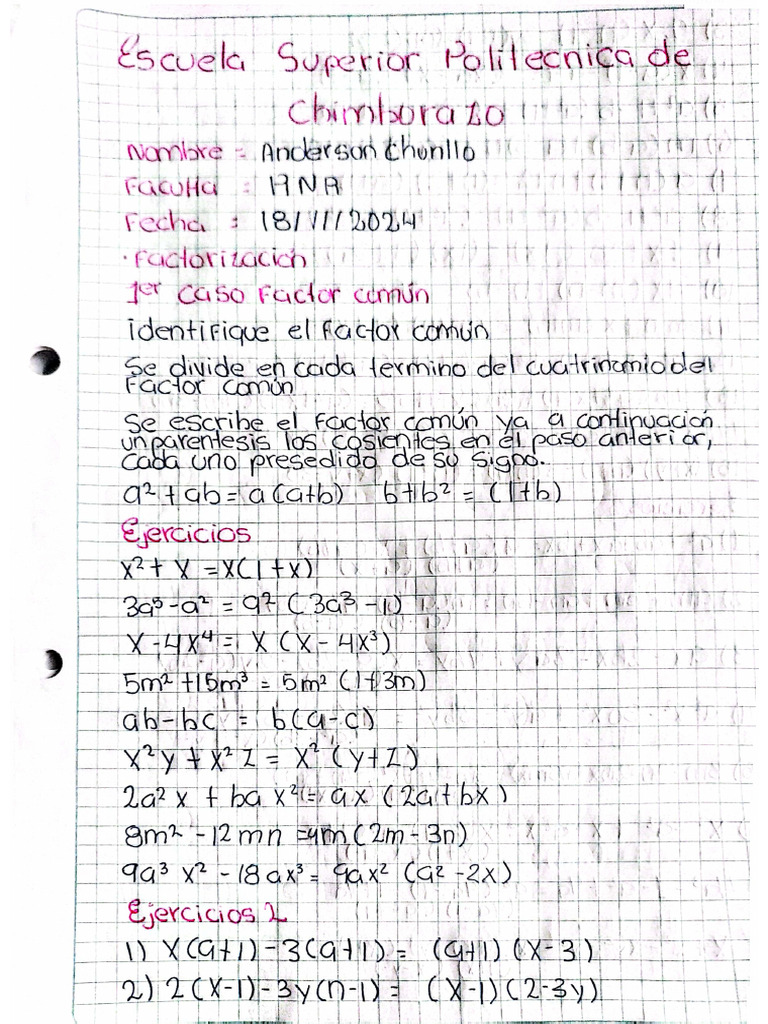 Escuela Superior Politecnica de
Chimborazo
Nombre = Anderson Chunllo
Faculta : RNA
Fecha : 18/VI/2024
· Factorizacion
1er caso Factor común
identifique el Factor común
Se divide en cada termino del cuatrinomio del
Factor común
Se escribe el Factor común ya a continuación
un parentesis los cosientes en el paso anterior,
cada uno presedido de su signo.
a² + ab = a (a+b) b+b² = (1+b)
Ejercicios
x² + x = x(1+x)
3a³ - a² = a² (3a³ - 1)
x - 4x⁴ = x (x - 4x³)
5m² + 15m³ = 5m² (1+3m)
ab - bc = b(a-c)
x²y + x²z = x² (y+z)
2a²x + bax² = ax (2a + bx)
8m² - 12mn = 4m(2m - 3n)
9a³ x² - 18ax³ = 9ax² (a² - 2x)
Ejercicios 2
1) x(a+1) - 3(a+1) = (a+1) (x-3)
2) 2(x-1) - 3y(n-1) = (x-1)(2-3y)